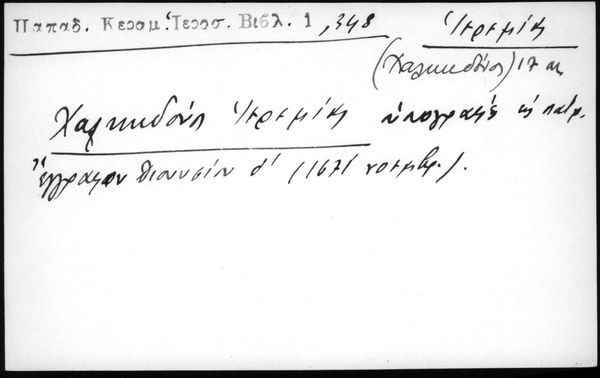 Παπαδ. Κερσμ. Ἱεροσ. Βιβλ. 1, 348
Ἱερεμίας
(Χαλκηδόνος) 17 αι.
Χαλκηδόνος Ἱερεμίας ὑπογραφὴ εἰς πατρ.
ἔγγραφον Διονυσίου δ' (1671 νοεμβρ.).